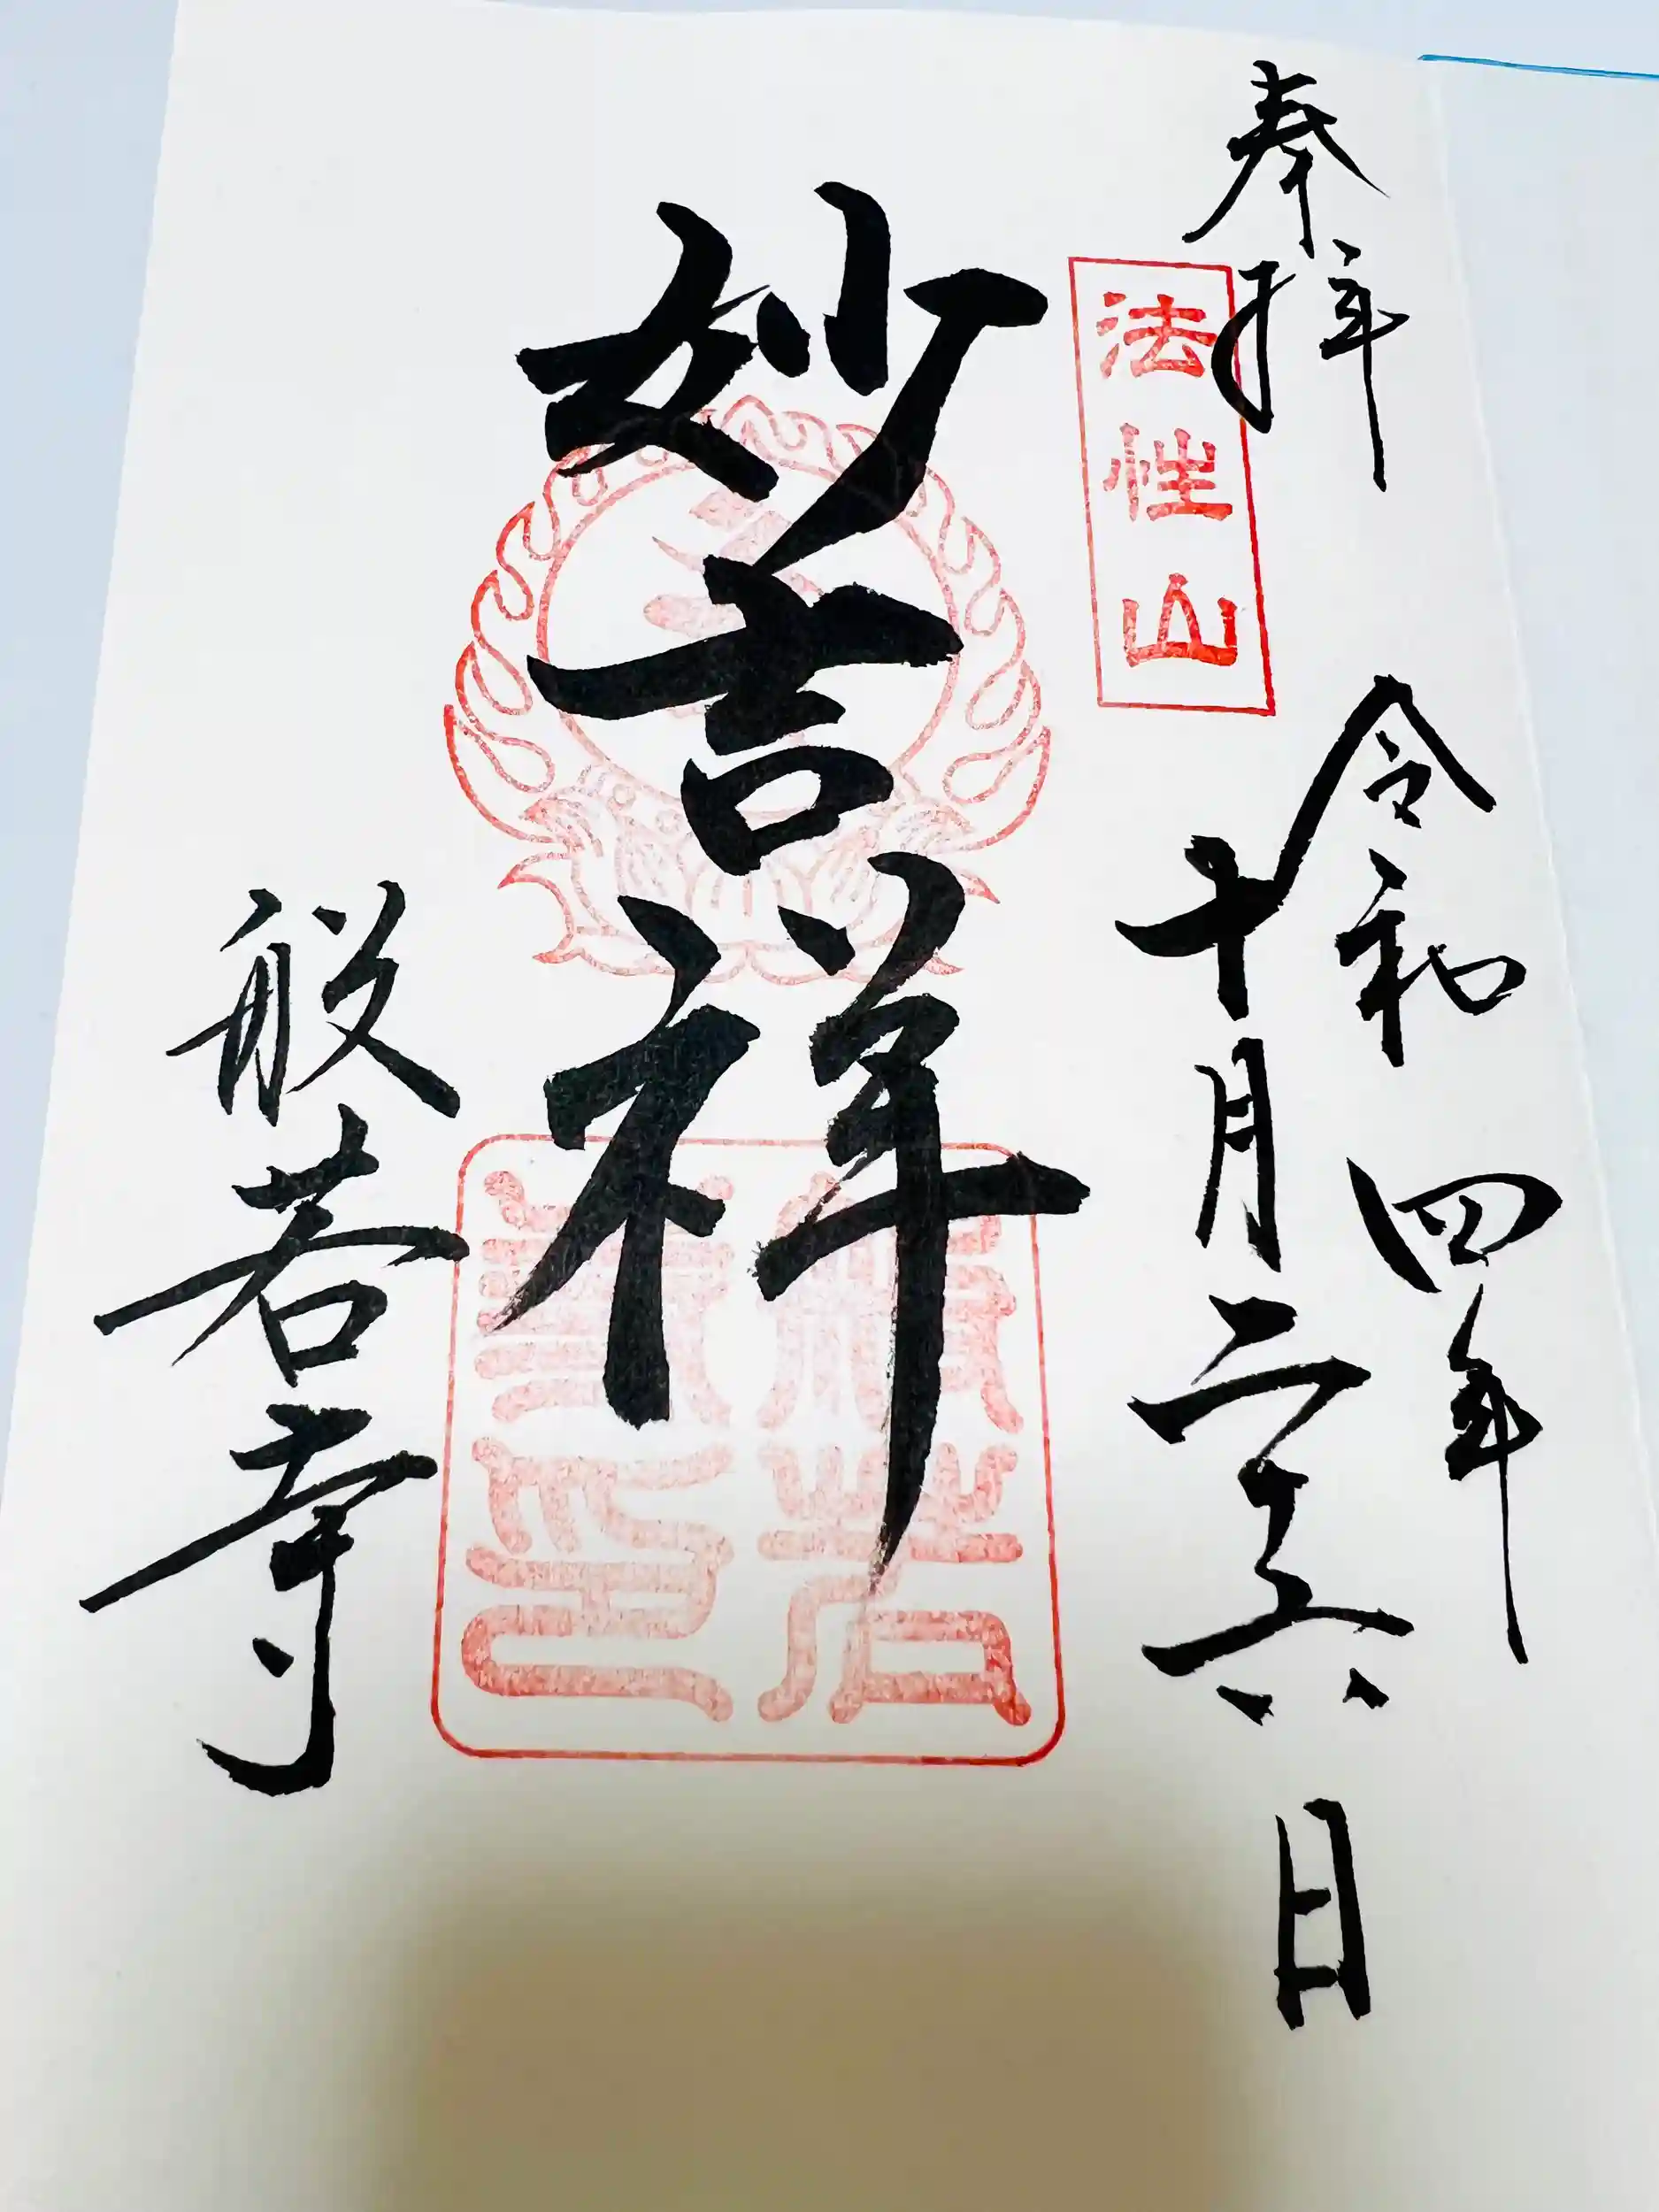 奉拝
令和四年
十月二十六日
法性山
妙吉祥
般若寺